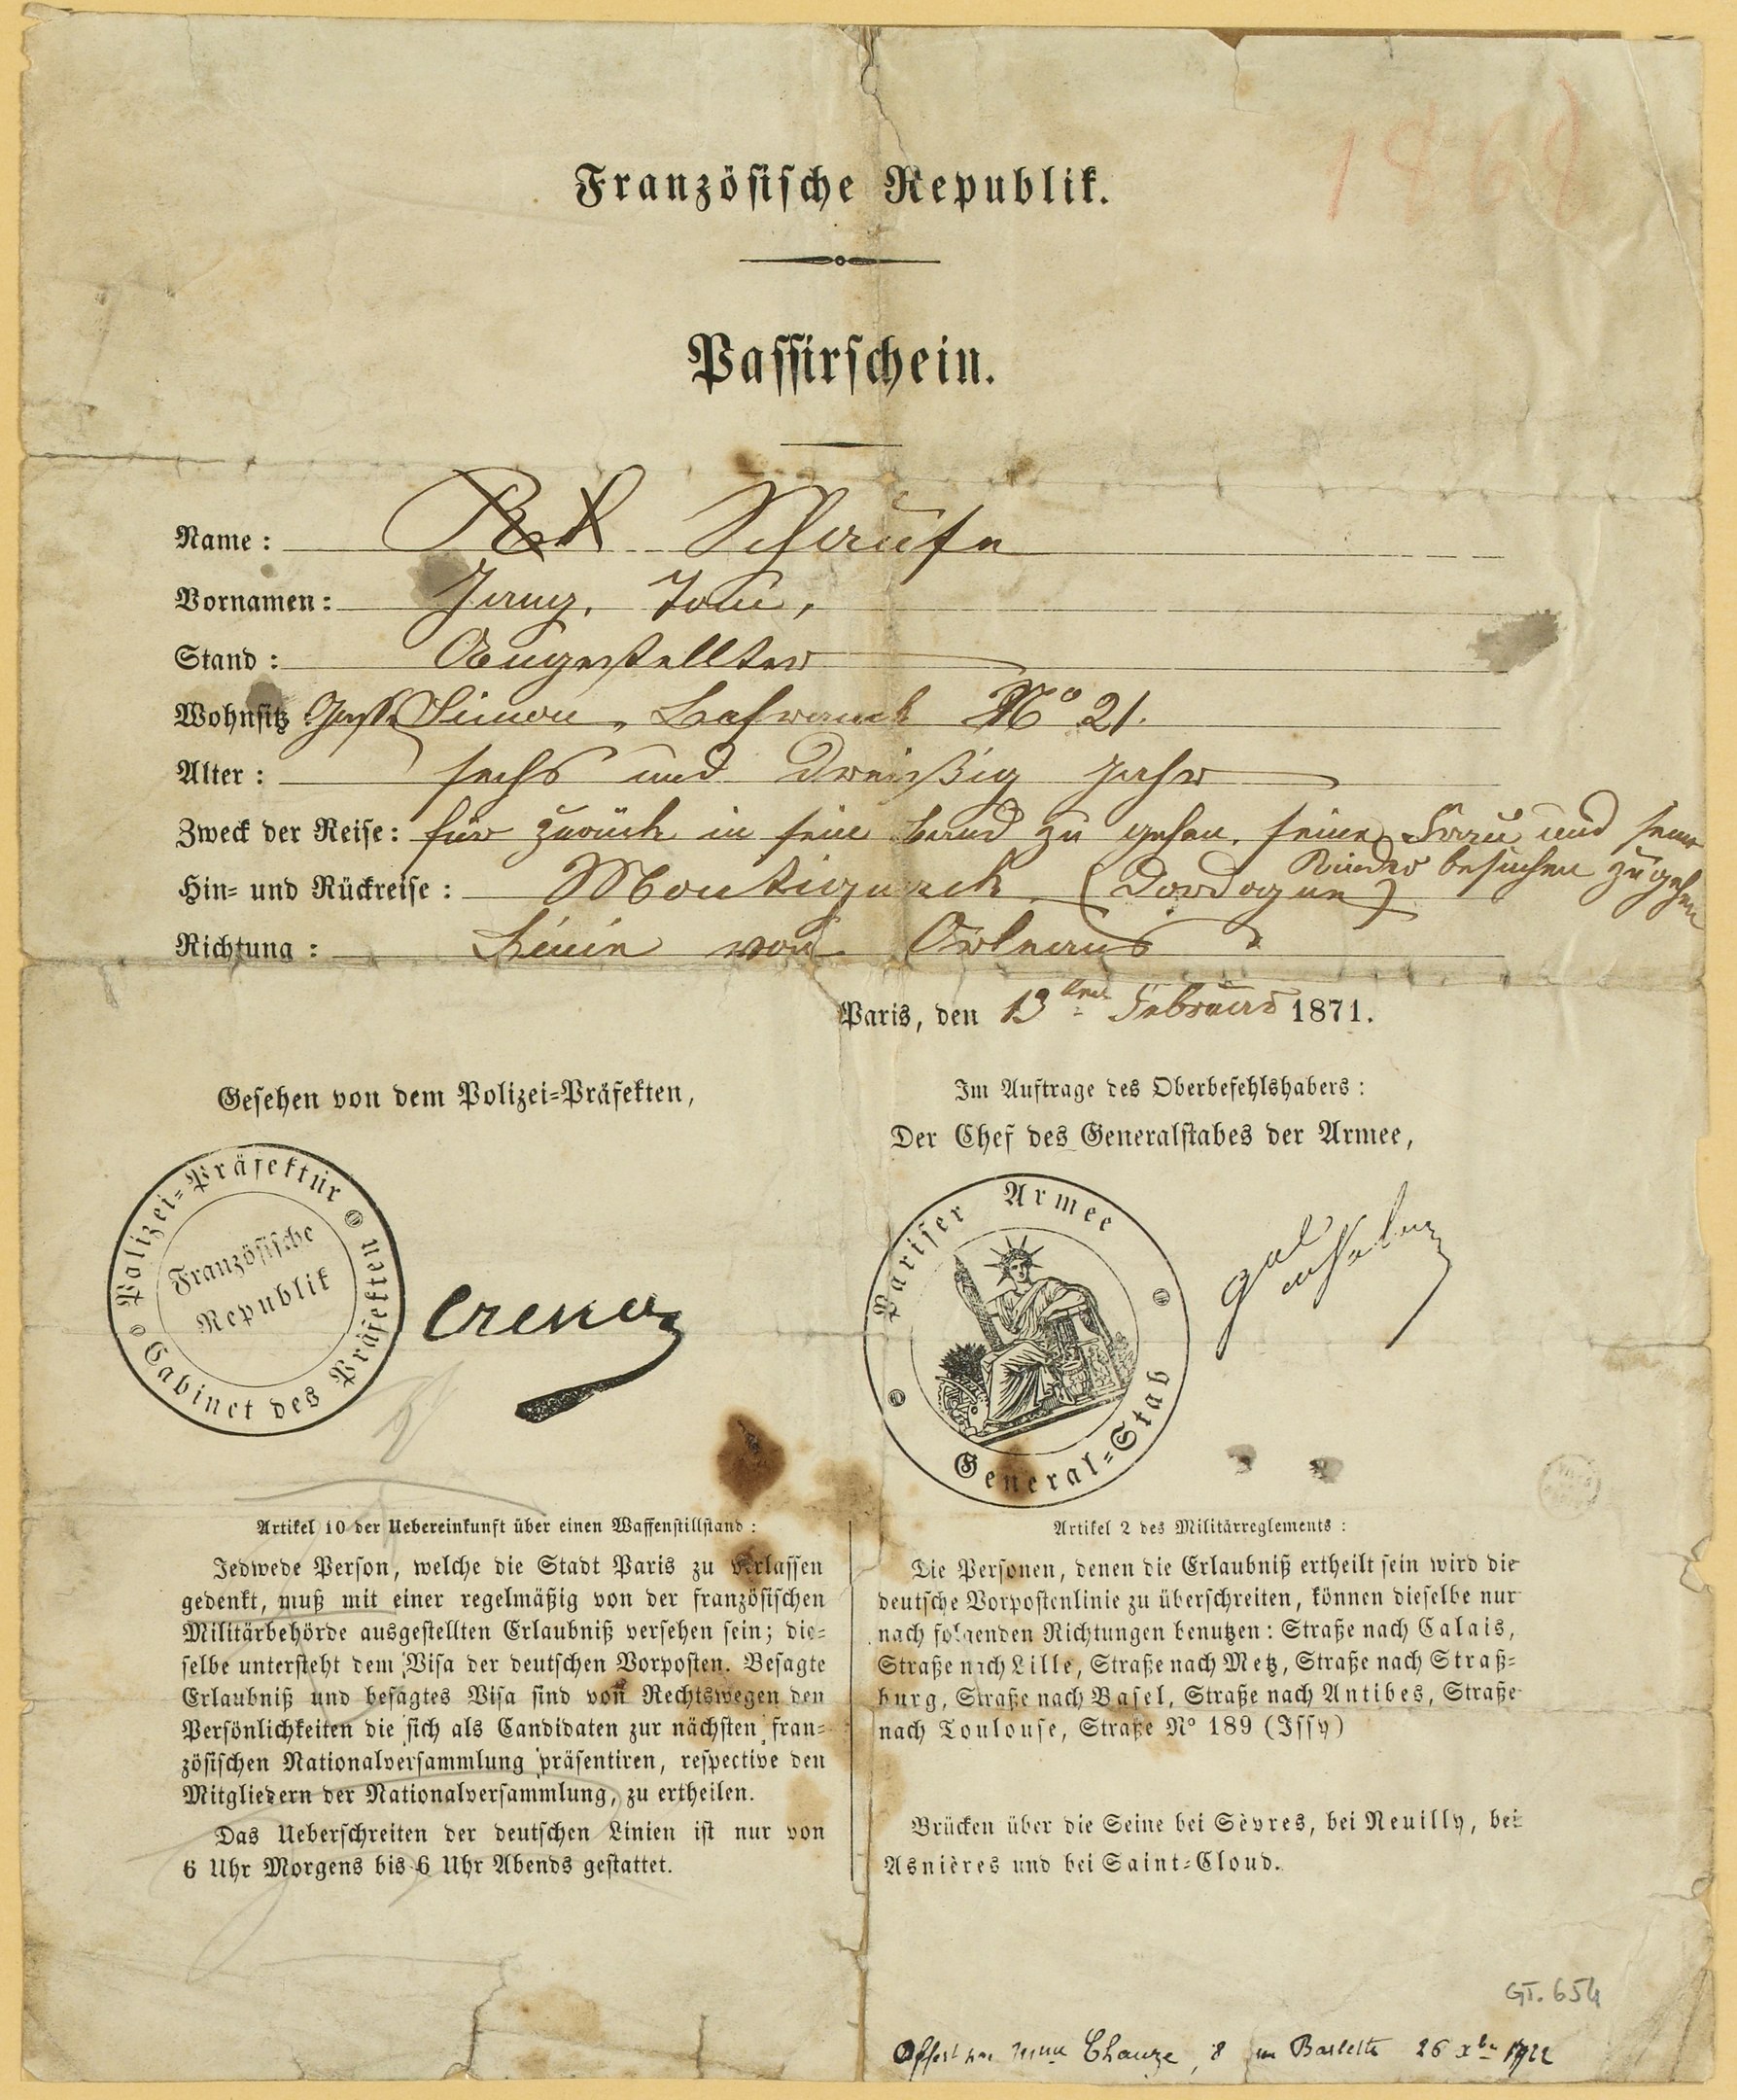 1868
Französische Republik.
Passirschein.
Name: Schaufe
Vornamen:
Stand: Angestellter
Wohnsitz Simon, Lafranck Nº 21.
Alter: sechs und dreißig Jahr
Zweck der Reise: für zurück in sein Land zu gehen, seine Frau und seine
Kinder besuchen zu gehen
Hin- und Rückreise: Montignack (Dordogne)
Richtung: Linie von Orleans
Paris, den 13ten Februar 1871.
Gesehen von dem Polizei-Präfekten,
Polizei-Präfektür
Cabinet des Präfekten
Französische
Republik
Cresson
Im Auftrage des Oberbefehlshabers:
Der Chef des Generalstabes der Armee,
Pariser Armee
General-Stab
Gal
Artikel 10 der Uebereinkunft über einen Waffenstillstand:
Jedwede Person, welche die Stadt Paris zu verlassen
gedenkt, muß mit einer regelmäßig von der französischen
Militärbehörde ausgestellten Erlaubniß versehen sein; die-
selbe untersteht dem Visa der deutschen Vorposten. Besagte
Erlaubniß und besagtes Visa sind von Rechtswegen den
Persönlichkeiten die sich als Candidaten zur nächsten fran-
zösischen Nationalversammlung präsentiren, respective den
Mitgliedern der Nationalversammlung, zu ertheilen.
Das Ueberschreiten der deutschen Linien ist nur von
6 Uhr Morgens bis 6 Uhr Abends gestattet.
Artikel 2 des Militärreglements:
Die Personen, denen die Erlaubniß ertheilt sein wird die
deutsche Vorpostenlinie zu überschreiten, können dieselbe nur
nach folgenden Richtungen benutzen: Straße nach Calais,
Straße nach Lille, Straße nach Metz, Straße nach Straß-
burg, Straße nach Basel, Straße nach Antibes, Straße
nach Toulouse, Straße Nº 189 (Issy)
Brücken über die Seine bei Sèvres, bei Neuilly, bei
Asnières und bei Saint-Cloud.
GT. 654
Offert par Mme Chauze, 8 rue Barlette 26 xbre 1922